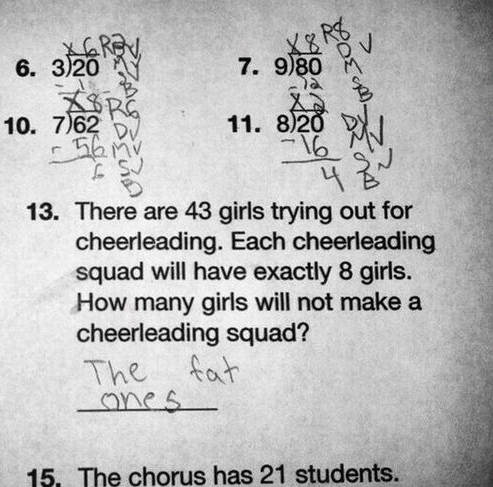 x6R2
6. 3)20
x8 R8
7. 9)80
x8R6
10. 7)62
- 56
6
x2
11. 8)20
-16
4
13. There are 43 girls trying out for
cheerleading. Each cheerleading
squad will have exactly 8 girls.
How many girls will not make a
cheerleading squad?
The fat
ones
15. The chorus has 21 students.